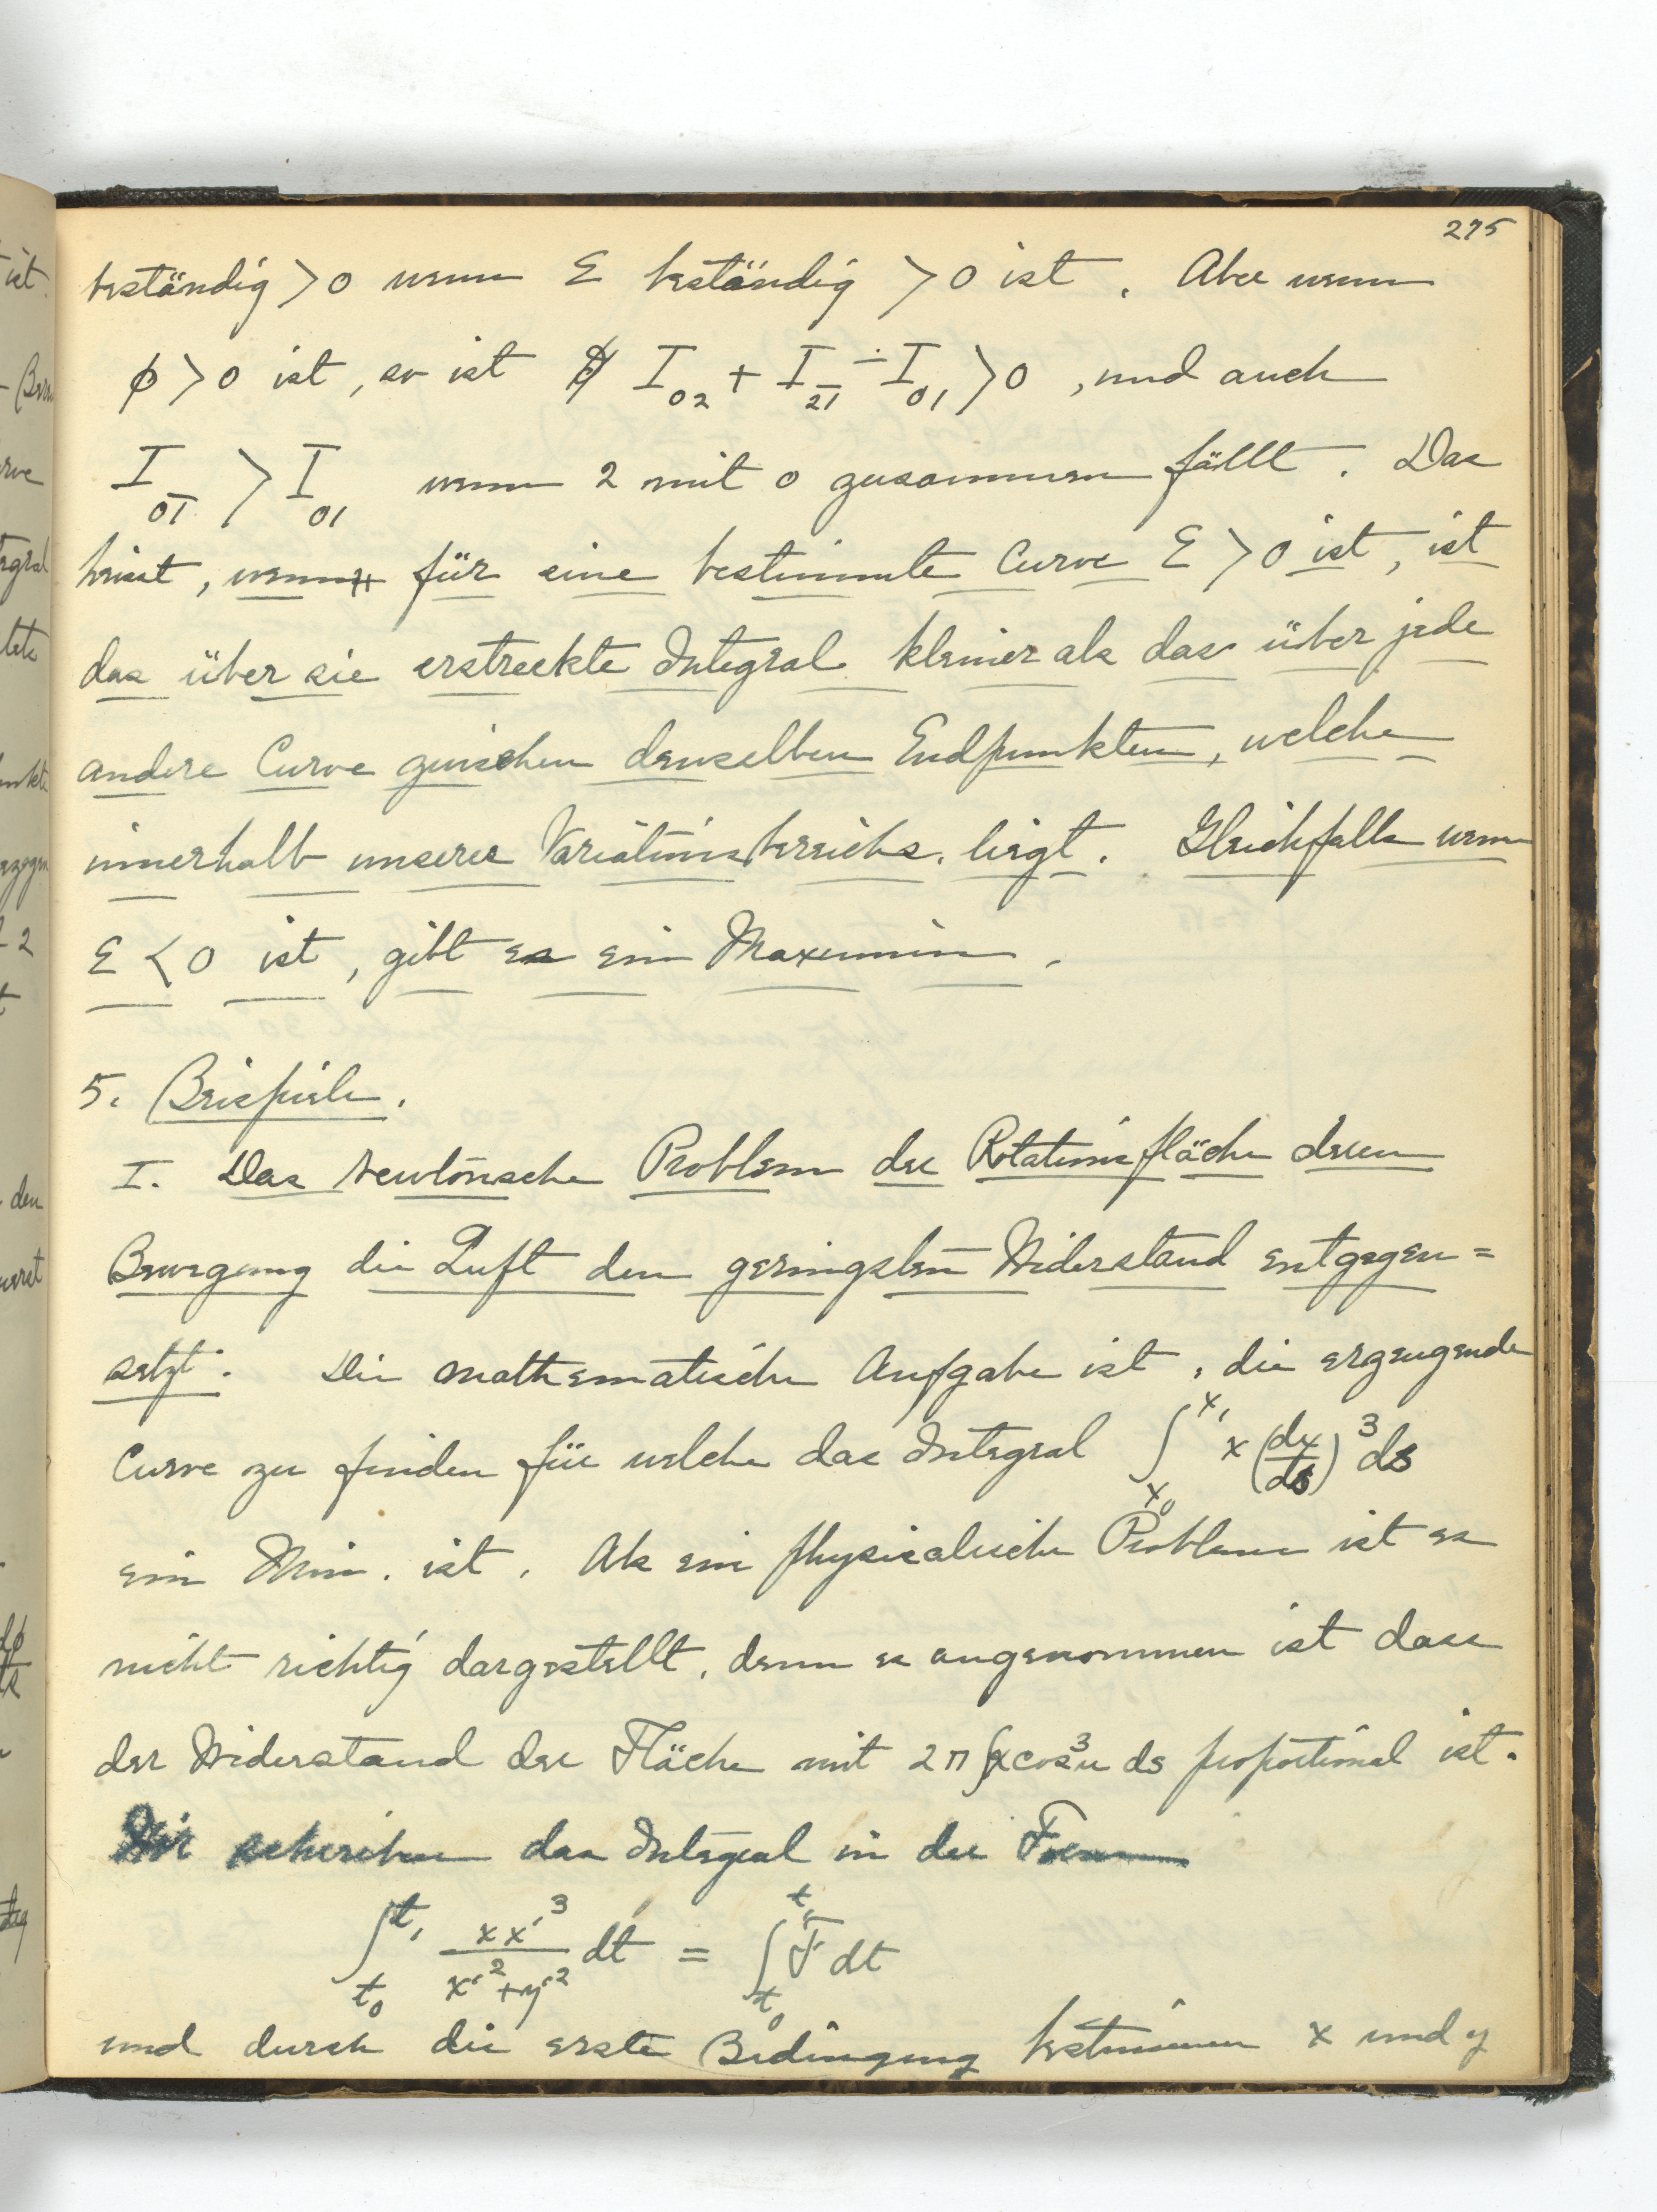 275
beständig > 0 wenn E beständig > 0 ist. Aber wenn
ϕ > 0 ist, so ist I₀₂ + I₂₁̄ ∸ I₀₁ > 0, und auch
I₀₁̄ > I₀₁ wenn 2 mit 0 zusammen fällt. Das
heisst, wenn für eine bestimmte Curve E > 0 ist, ist
das über sie erstreckte Integral kleiner als das über jede
andere Curve zwischen denselben Endpunkten, welche
innerhalb unseres Variationsbereichs liegt. Gleichfalls wenn
E < 0 ist, gibt es ein Maximum.
5. Beispiele.
I. Das Newtonsche Problem der Rotationsfläche deren
Bewegung die Luft den geringsten Widerstand entgegen=
setzt. Die mathematische Aufgabe ist, die erzeugende
Curve zu finden für welche das Integral ∫_{x₀}^{x₁} x (dx/ds)³ ds
ein Min. ist. Als ein physicalische Problem ist es
nicht richtig dargestellt, denn es angenommen ist dass
der Widerstand der Fläche mit 2π∫x cos³u ds proportional ist.
Wir schreiben das Integral in der Form
∫_{t₀}^{t₁} xx'³/(x'²+y'²) dt = ∫_{t₀}^{t₁} F dt
und durch die erste Bedingung bestimmen x und y